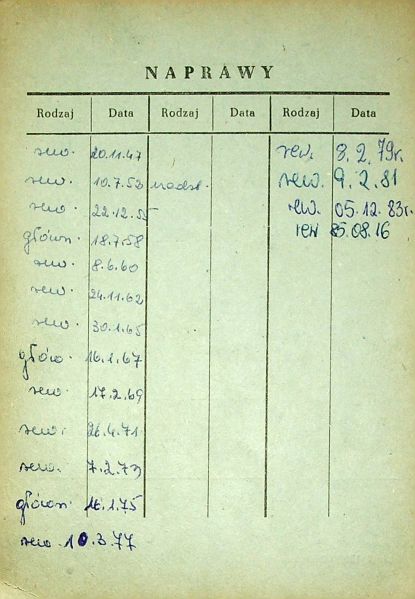 NAPRAWY
Rodzaj Data Rodzaj Data Rodzaj Data
rew. 20.11.47 rew. 8.2.79r.
rew. 10.7.53 nadzw. rew. 9.2.81
rew. 22.12.55 rew. 05.12.83r.
główn. 18.7.58 rew 85.08.16
rew. 8.6.60
rew. 24.11.62
rew. 30.1.65
głów. 16.1.67
rew. 17.2.69
rew. 26.4.71
rew. 7.2.73
główn. 16.1.75
rew. 10.3.77